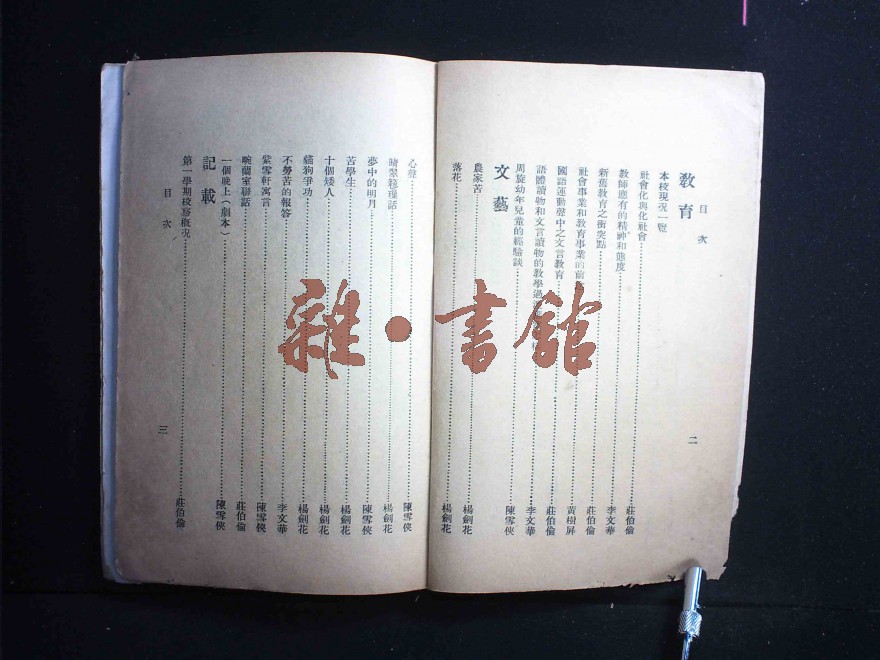 目次
教育
本校現況一覽
社會化與化社會 莊伯倫
教師應有的精神和態度 李文華
新舊教育之衝突點 莊伯倫
社會事業和教育事業的前 黃樹屏
國語運動聲中之文言教育 莊伯倫
語體讀物和文言讀物的教學過 李文華
周旋幼年兒童的經驗談 陳雪俠
文藝
農家苦 楊劍花
落花 楊劍花
二
心聲 陳雪俠
晴翠簃瑣話 楊劍花
夢中的明月 陳雪俠
苦學生 楊劍花
十個矮人 楊劍花
貓狗爭功 楊劍花
不勞苦的報答 李文華
棠雪軒寓言 陳雪俠
畹蘭室聯話 莊伯倫
一個晚上(劇本) 陳雪俠
記載
第一學期校務概況 莊伯倫
目次
三
雜·書館